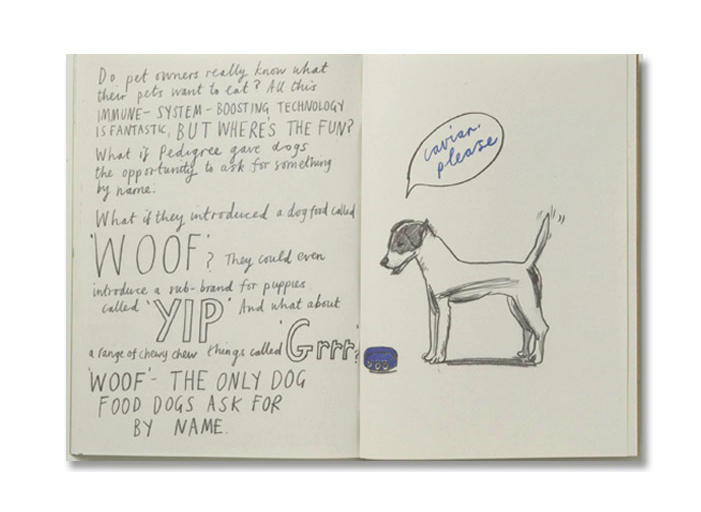 Do pet owners really know what
their pets want to eat? All this
IMMUNE-SYSTEM-BOOSTING TECHNOLOGY
IS FANTASTIC, BUT WHERE'S THE FUN?
What if Pedigree gave dogs
the opportunity to ask for something
by name.
What if they introduced a dog food called
'WOOF'? They could even
introduce a sub-brand for puppies
called 'YIP' And what about
a range of chewy chew things called 'Grrr'?
'WOOF'- THE ONLY DOG
FOOD DOGS ASK FOR
BY NAME.
caviar,
please